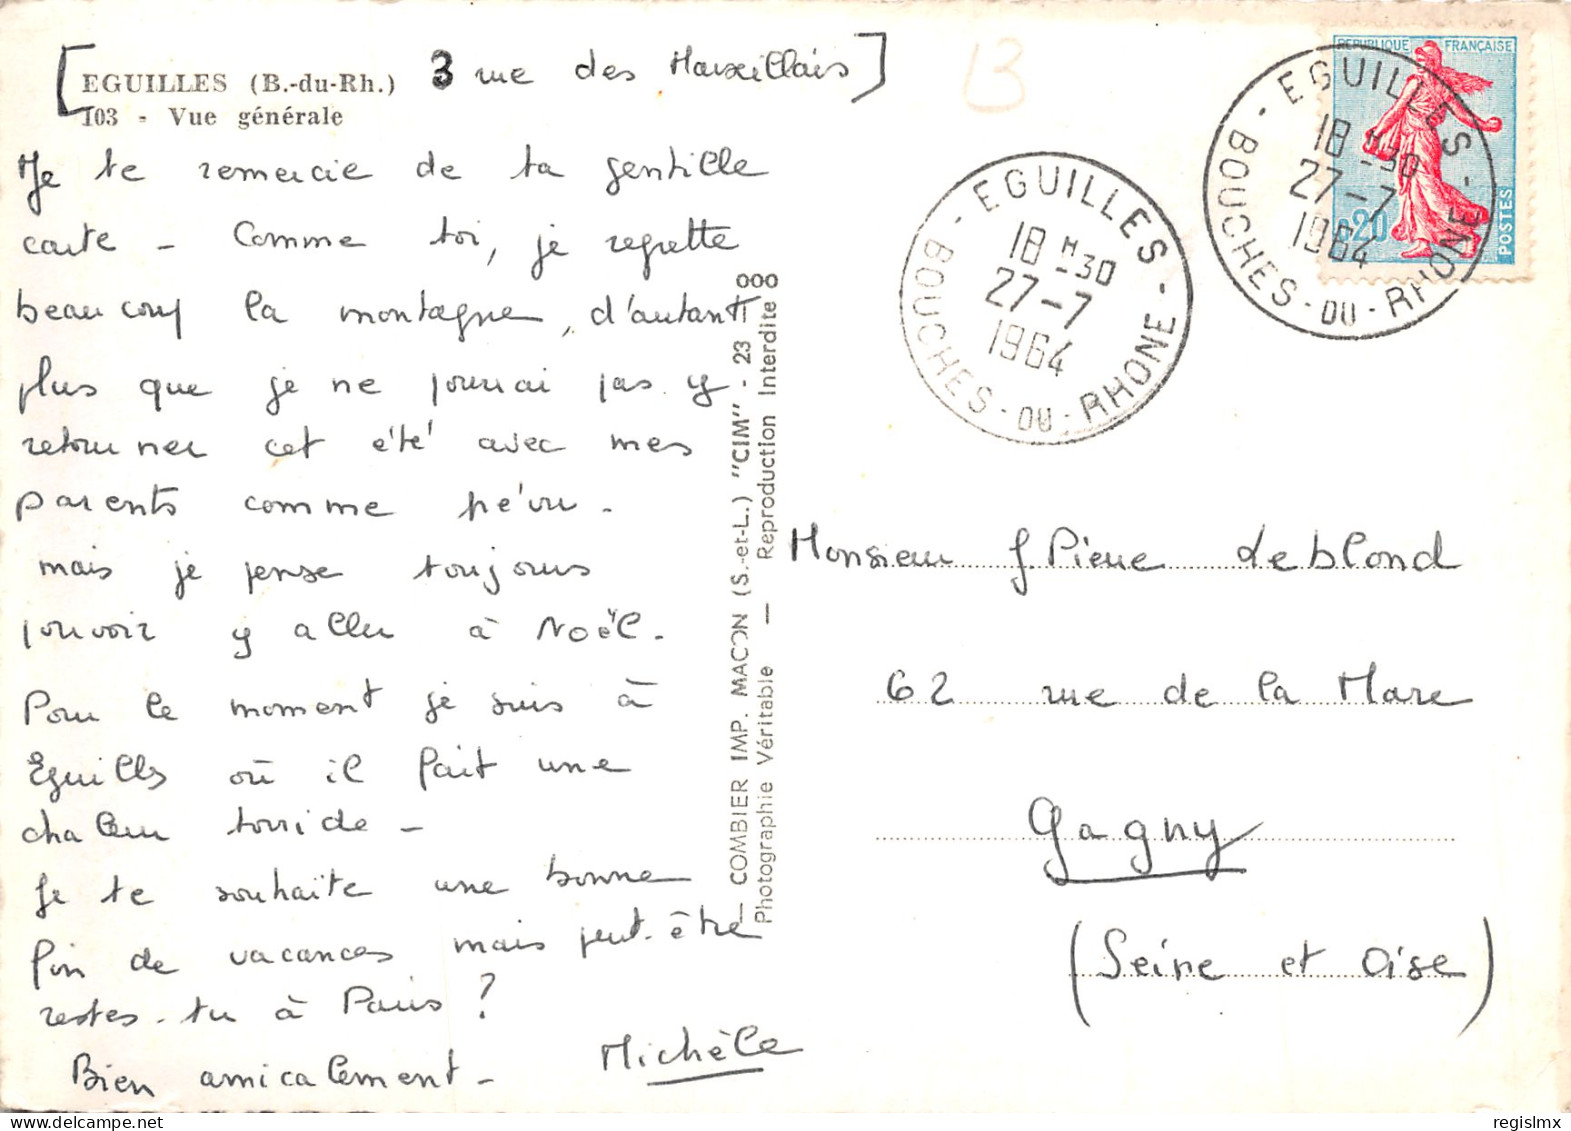 [EGUILLES (B.-du-Rh.) 3 rue des Marseillais]
103 - Vue générale
Je te remercie de ta gentille
carte - Comme toi, je regrette
beaucoup la montagne, d'autant
plus que je ne pourrai pas y
retourner cet été avec mes
parents comme prévu.
mais je pense toujours
pouvoir y aller à Noël.
Pour le moment je suis à
Eguilles où il fait une
chaleur torride -
Je te souhaite une bonne
fin de vacances mais peut-être
restes-tu à Paris ?
Bien amicalement - Michèle
— COMBIER IMP. MACON (S.-et-L.) "CIM" - 23 000
Photographie Véritable — Reproduction Interdite
B
EGUILLES
18 H 30
27-7
1964
BOUCHES-DU-RHONE
REPUBLIQUE FRANÇAISE
0,20
POSTES
EGUILLES
18 H 30
27-7
1964
BOUCHES-DU-RHONE
Monsieur J Pierre Leblond
62 rue de la Mare
Gagny
(Seine et Oise)
regislmx